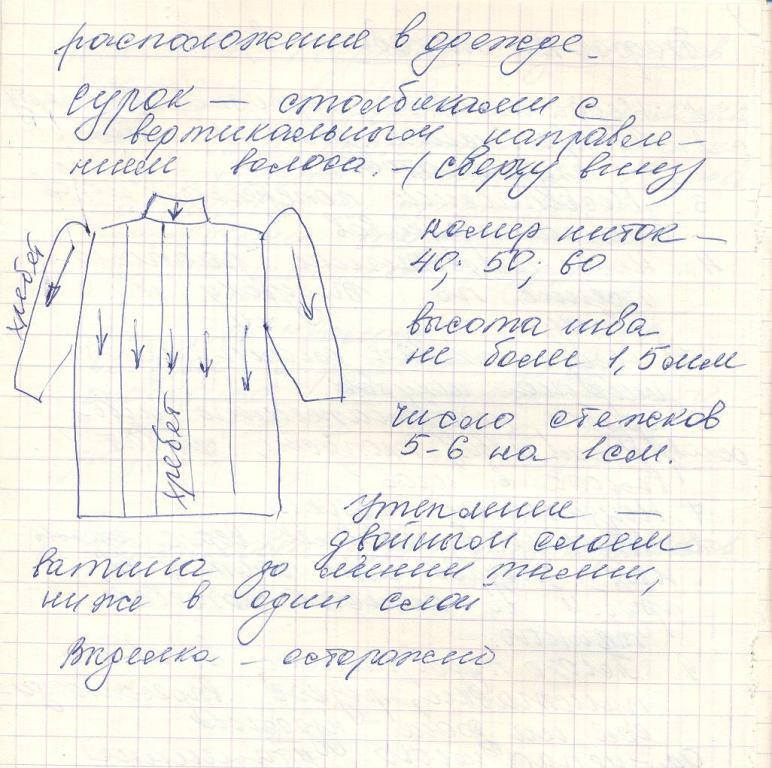 расположение в одежде.
сурок — столбиками с
вертикальным направле-
нием волоса. – (сверху вниз)
хребет
номер ниток —
40; 50; 60
высота шва
не более 1,5мм
число стежков
5-6 на 1см.
хребет
Утепление —
двойным слоем
ватина до линии талии,
ниже в один слой
Выделка – осторожно